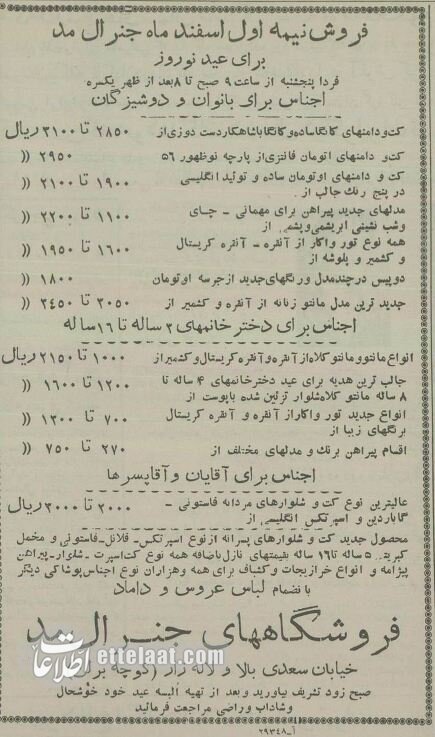 فروش نیمه اول اسفند ماه جنرال مد
برای عید نوروز
فردا پنجشنبه از ساعت ۹ صبح تا ۸ بعد از ظهر یکسره
اجناس برای بانوان و دوشیزگان
کت و دامنهای کانگا ساده و کانگا با شاهکار دست دوزی از ۲۸۵۰ تا ۳۱۰۰ ریال
کت و دامنهای اتومان فانتزی از پارچه نوظهور ۵۶ ۲۹۵۰ ((
کت و دامنهای اوتومان ساده و توئید انگلیسی ۱۹۰۰ تا ۲۱۰۰ ((
در پنج رنگ جالب از
مدلهای جدید پیراهن برای مهمانی - چای ۱۱۰۰ تا ۲۲۰۰ ((
وشب نشینی ابریشمی و پشمی از
همه نوع تور واکار از آنقره - آنقره کریستال ۱۶۰۰ تا ۱۹۵۰ ((
و کشمیر و پلوشه از
دوپیس در چند مدل و رنگهای جدید از جرسه اوتومان ۱۸۰۰ ((
جدید ترین مدل مانتو زنانه از آنقره و کشمیر از ۲۰۵۰ تا ۲۴۵۰ ((
اجناس برای دختر خانمهای ۲ ساله تا ۱۶ ساله
انواع مانتو و مانتو کلاه از آنقره و آنقره کریستال و کشمیر از ۱۰۰۰ تا ۲۱۵۰ ریال
جالب ترین هدیه برای عید دختر خانمهای ۴ ساله تا ۱۲۰۰ تا ۱۶۰۰ ((
۸ ساله مانتو کلاه شلوار تزئین شده با پوست از
انواع جدید تور واکار از آنقره و آنقره کریستال ۷۰۰ تا ۱۳۰۰ ((
برنگهای زیبا از
اقسام پیراهن برنگ و مدلهای مختلف از ۲۷۰ تا ۷۵۰ ((
اجناس برای آقایان و آقا پسرها
عالیترین نوع کت و شلوارهای مردانه فاستونی - ۲۰۰۰ تا ۳۰۰۰ ریال
گاباردین و اسپرتکس انگلیسی از
محصول جدید کت و شلوارهای پسرانه از نوع اسپرتکس - فلانل - فاستونی و مخمل
کبریتی ۵ ساله تا ۱۶ ساله بقیمتهای نازل باضافه همه نوع کت اسپرت - شلوار - پیراهن
پیژامه و انواع خرازیجات و کشباف برای همه و هزاران نوع اجناس پوشاکی دیگر
با نضمام لباس عروس و داماد
فروشگاههای جنرال مد
خیابان سعدی بالا و لاله زار (کوچه
صبح زود تشریف بیاورید و بعد از تهیه البسه عید خود خوشحال
وشاداب و راضی مراجعت فرمائید
آ-۲۹۳۴۸
اطلاعات ettelaat.com